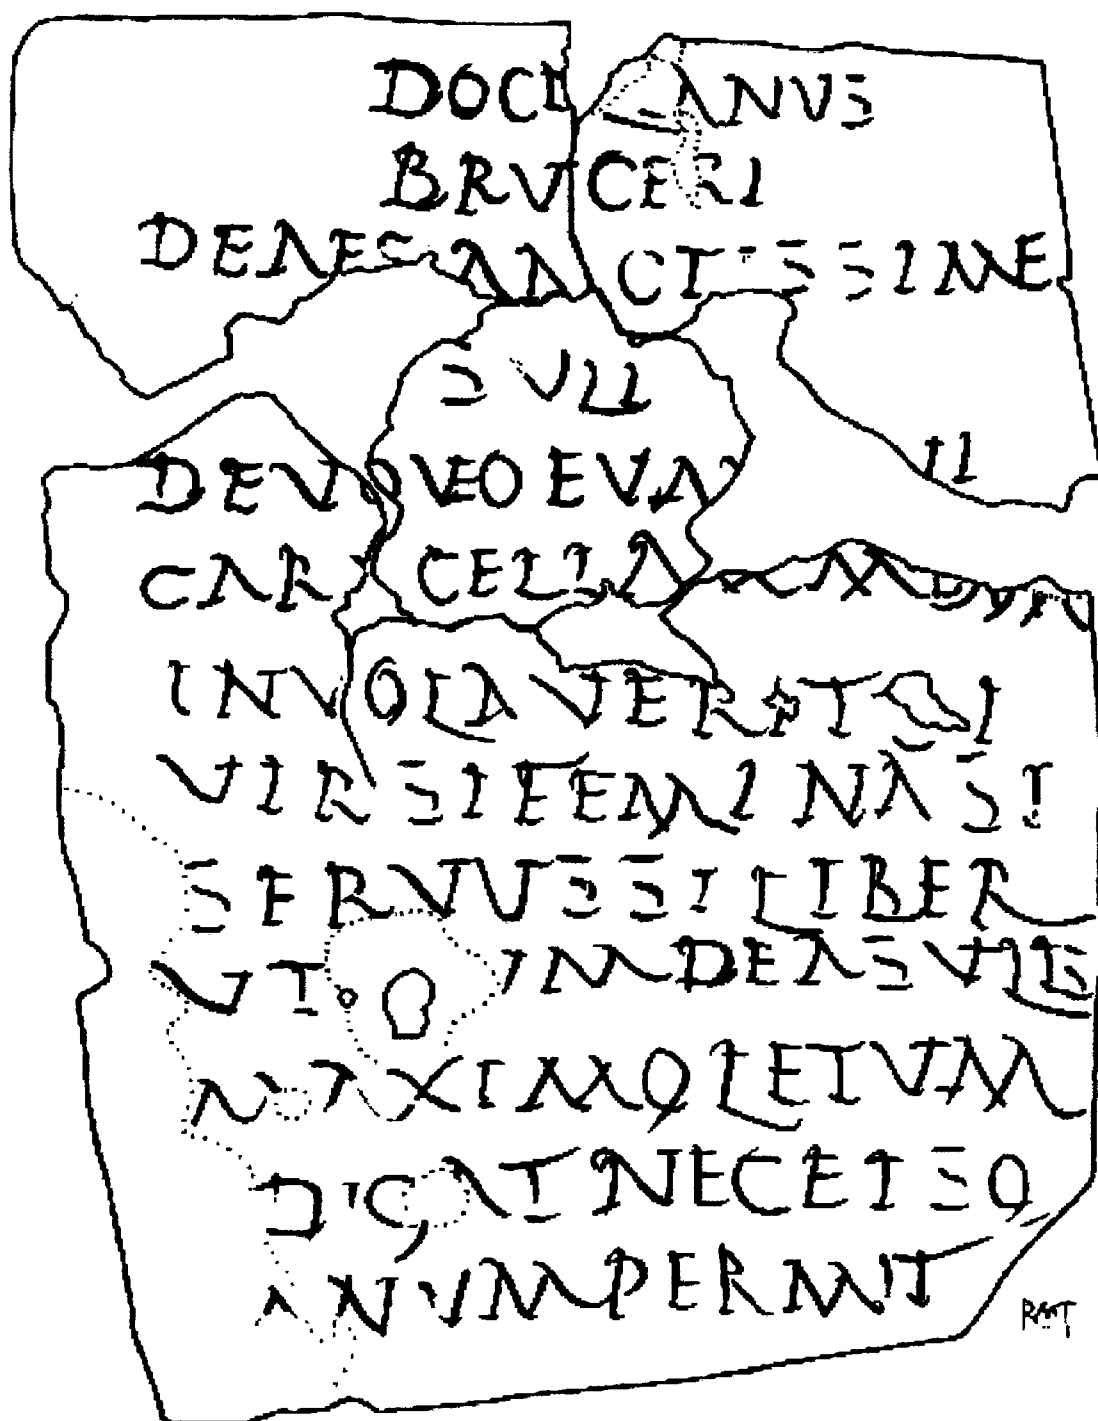 DOCILIANVS
BRVCERI
DEAESANCTISSIME
SVLI
DEVOVEOEVM
CARACELLAM
INVOLAVERITSI
VIRSIFEMINASI
SERVVSSILIBER
VT VMDEASVLIS
MAXIMOLETVM
DIGATNECEISO
NVMPERMIT